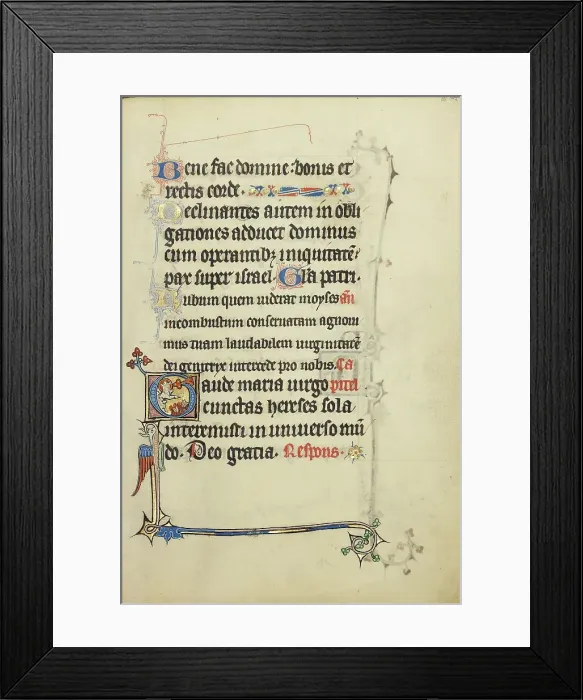 Bene fac domine: bonis et
rectis corde.
Declinantes autem in obli
gationes adducet dominus
cum operantibꝫ iniquitatē:
pax super israel. Gła patri.
Rubum quem uiderat moyses añ
incombustum conseruatam agnoui
mus tuam laudabilem uirginitatē
dei genitrix intercede pro nobis. Ca
Gaude maria uirgo pitel
cunctas hereses sola
interemisti in uniuerso mū
do. Deo gratia. Respons.